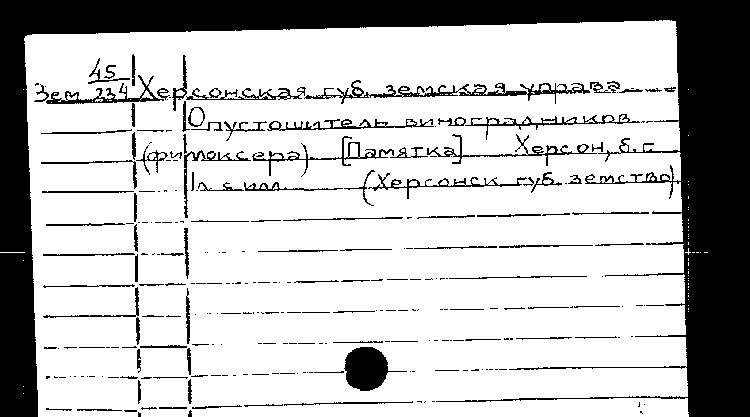 45
Зем 234 Херсонская губ. земская управа
Опустошитель виноградников
(филоксера). [Памятка] Херсон, б.г.
1л. с илл. (Херсонск. губ. земство).